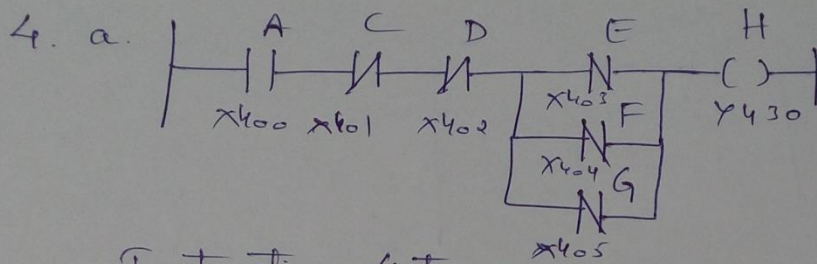 4. a.
A C D E H
X400 X401 X402 X403 Y430
F
X404
G
X405